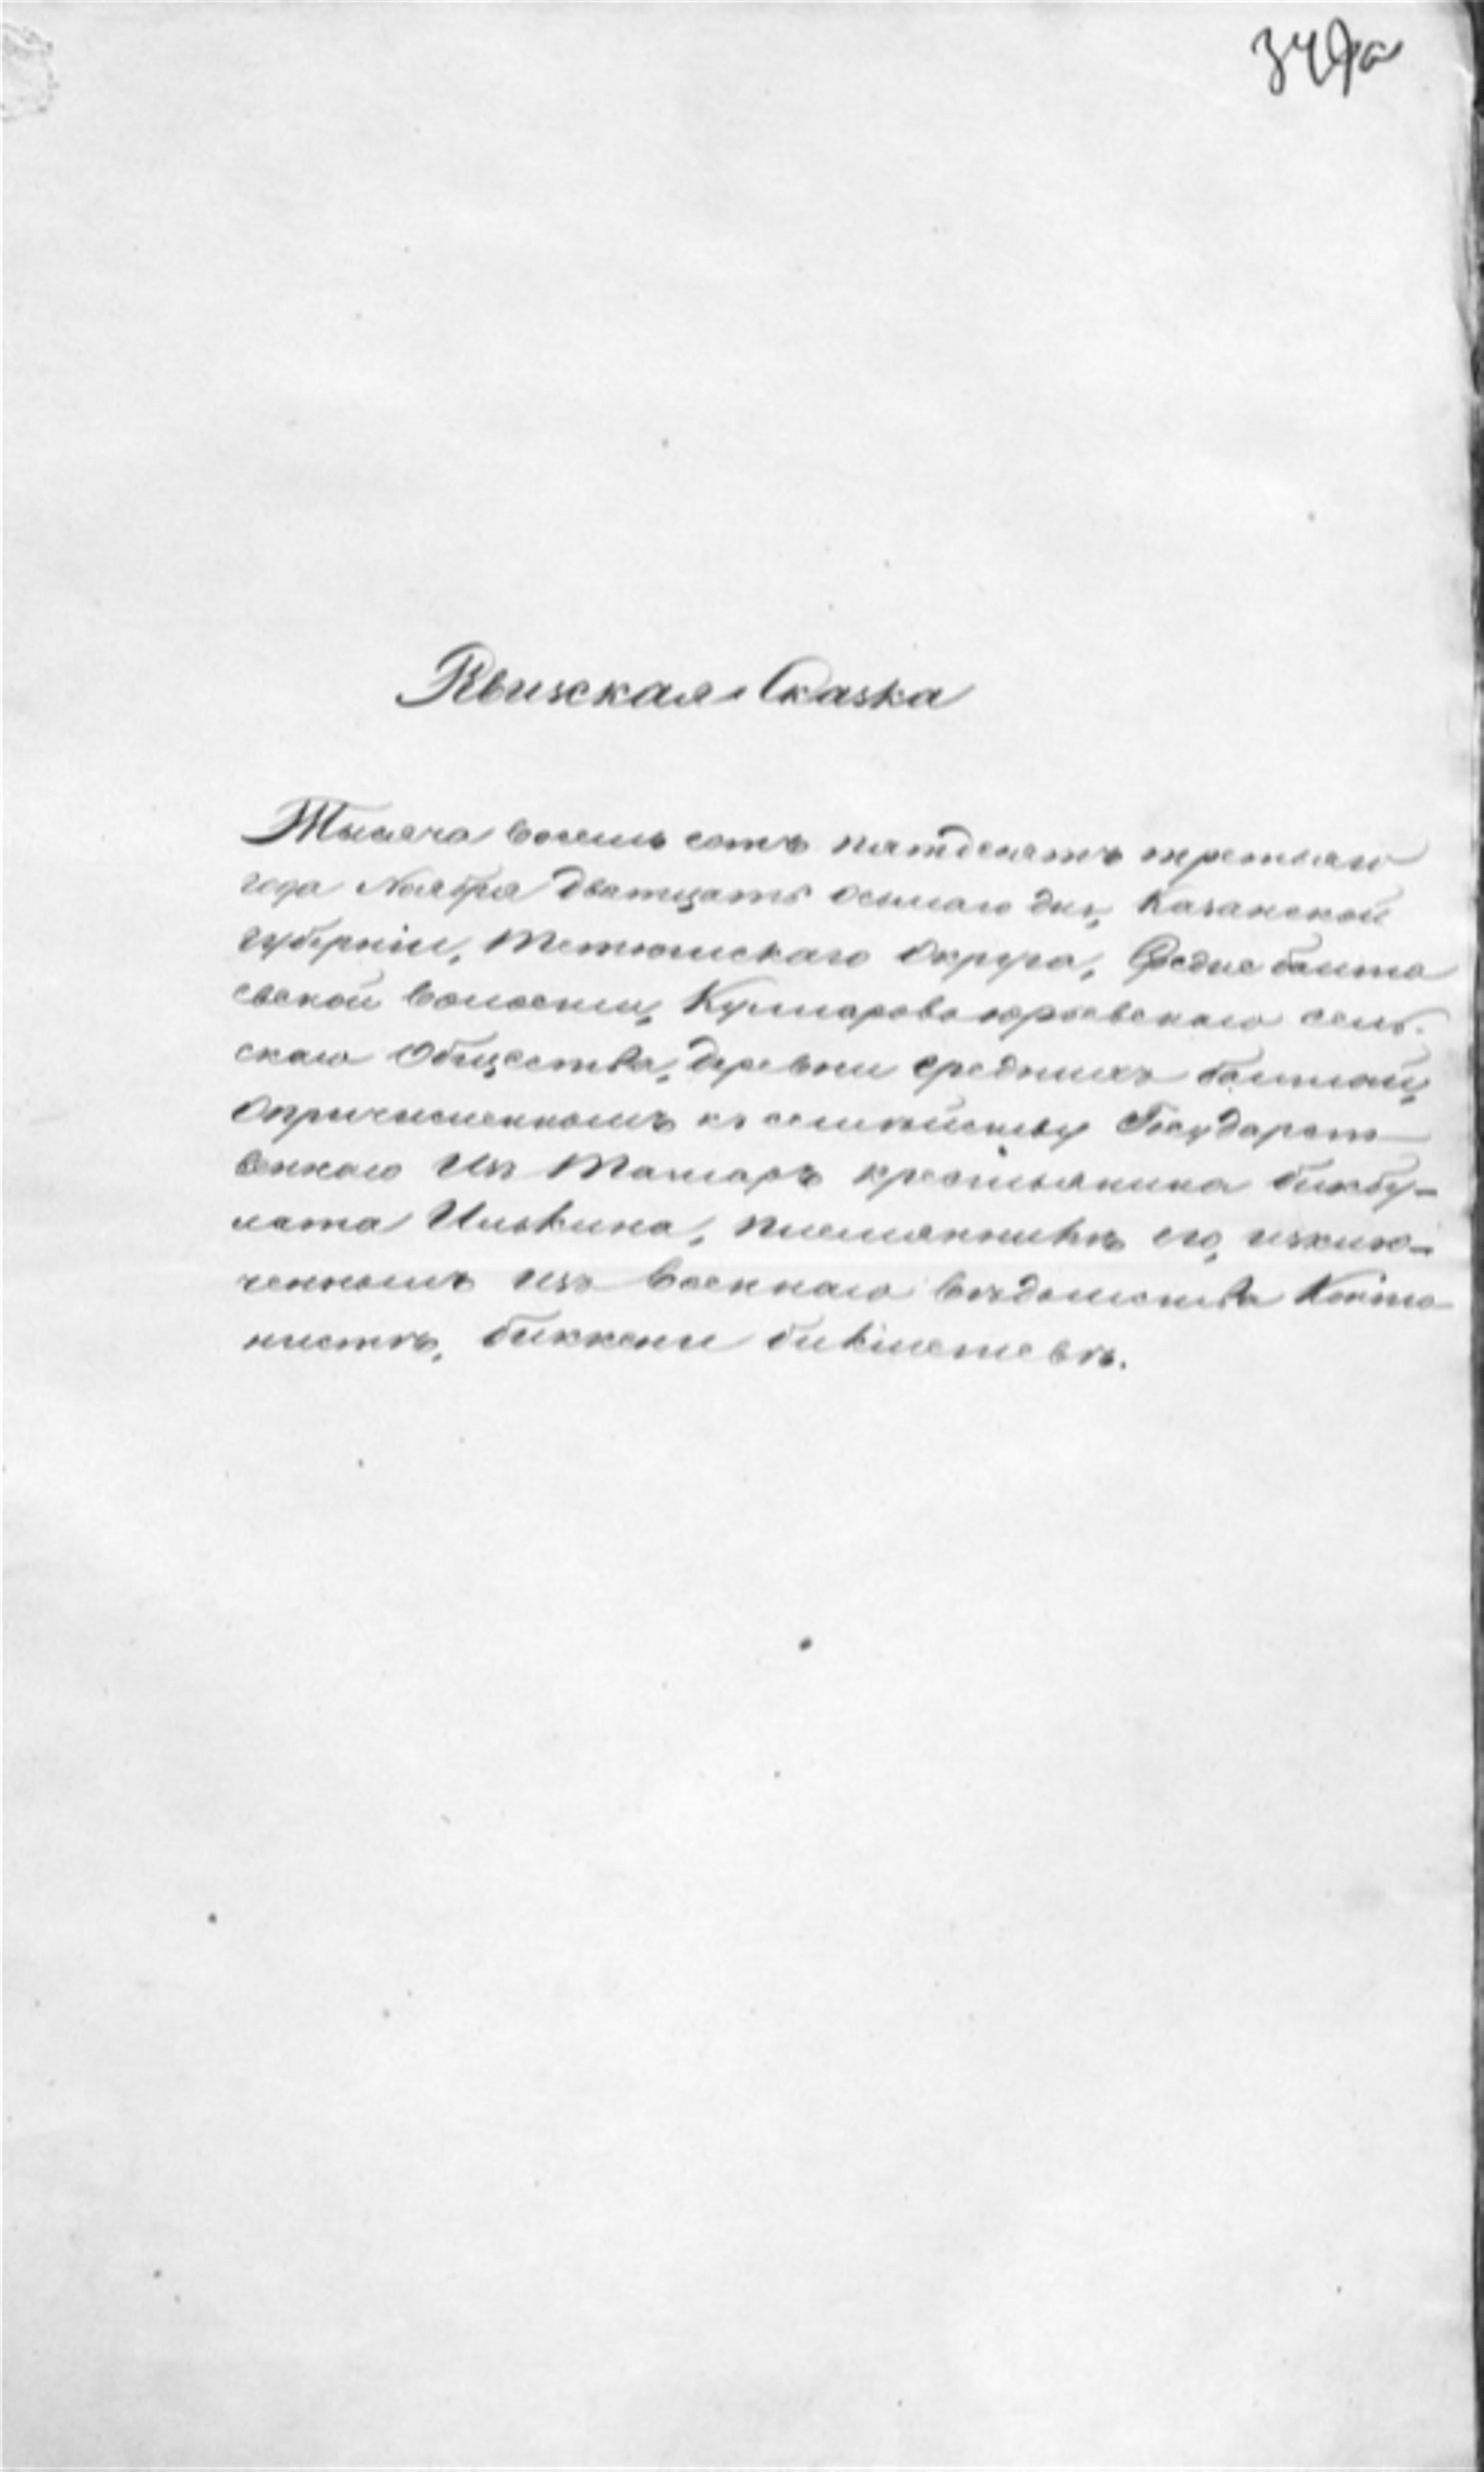 Ревизская Сказка
Тысяча восемь сотъ пятдесятъ третьяго
года Ноября дватцать осьмаго дня, Казанской
губерніи, Тетюшскаго Округа, Средне балта
евской волости, Кулларово юрьевскаго сель-
скаго Общества, деревни Среднихъ балтай,
Опричисленномъ къ семейству Государст
веннаго Изъ Татаръ крестьянина бикбу-
лата Илькина, племянникѣ его, изклю-
ченномъ изъ военнаго вѣдомства Канто
нистѣ, биккени